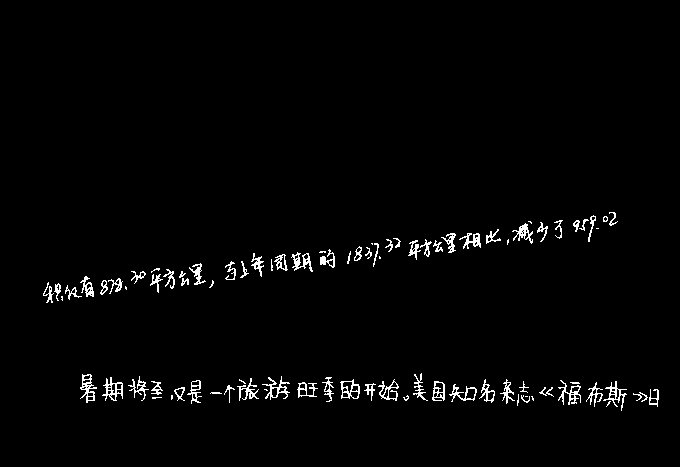 积仅有878.30平方公里，与上年同期的1837.32平方公里相比，减少了959.02
暑期将至，又是一个旅游旺季的开始。美国知名杂志《福布斯》日